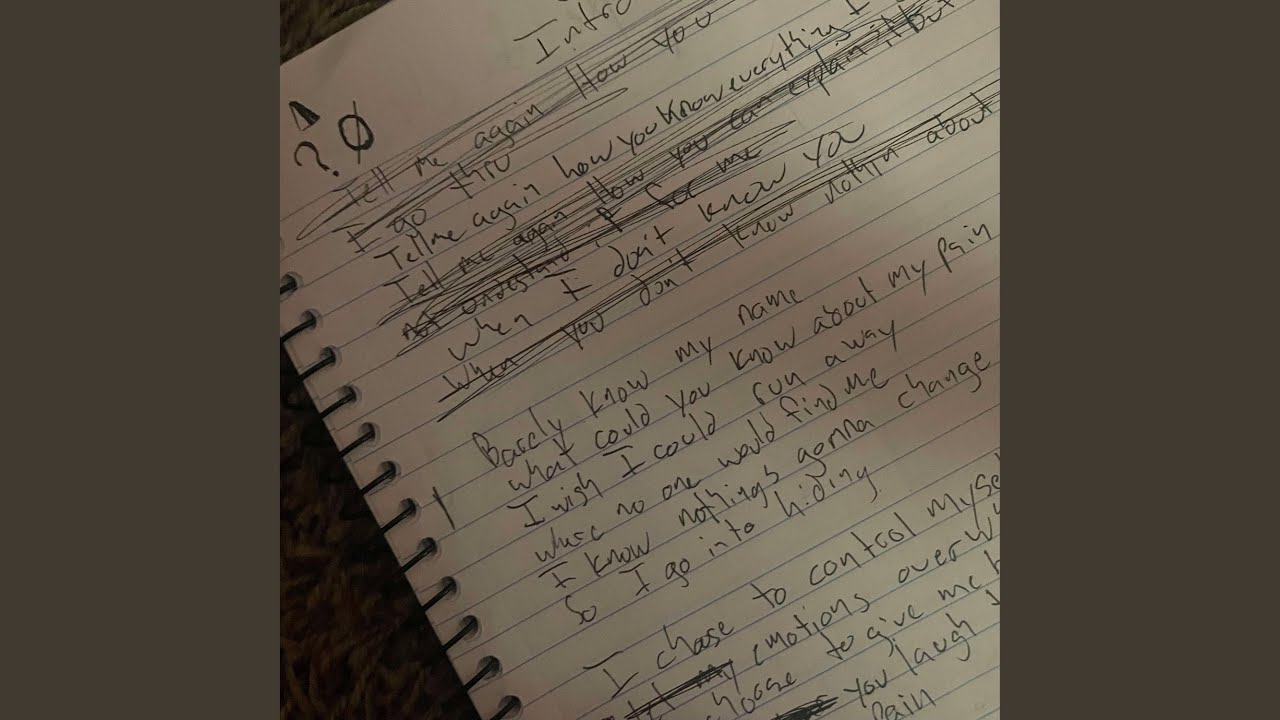 Intro
? Ø
Tell me again How you
I go thru
Tell me again how you know everything I
Tell me again How you can explain it but
not understand it for me
When I don't know you
When you don't know nothin about
Barely know my name
what could you know about my pain
I wish I could run away
where no one would find me
I know nothing's gonna change
So I go into hiding
1
I chose to control myse
my emotions over
choose to give me
you laugh
Pain